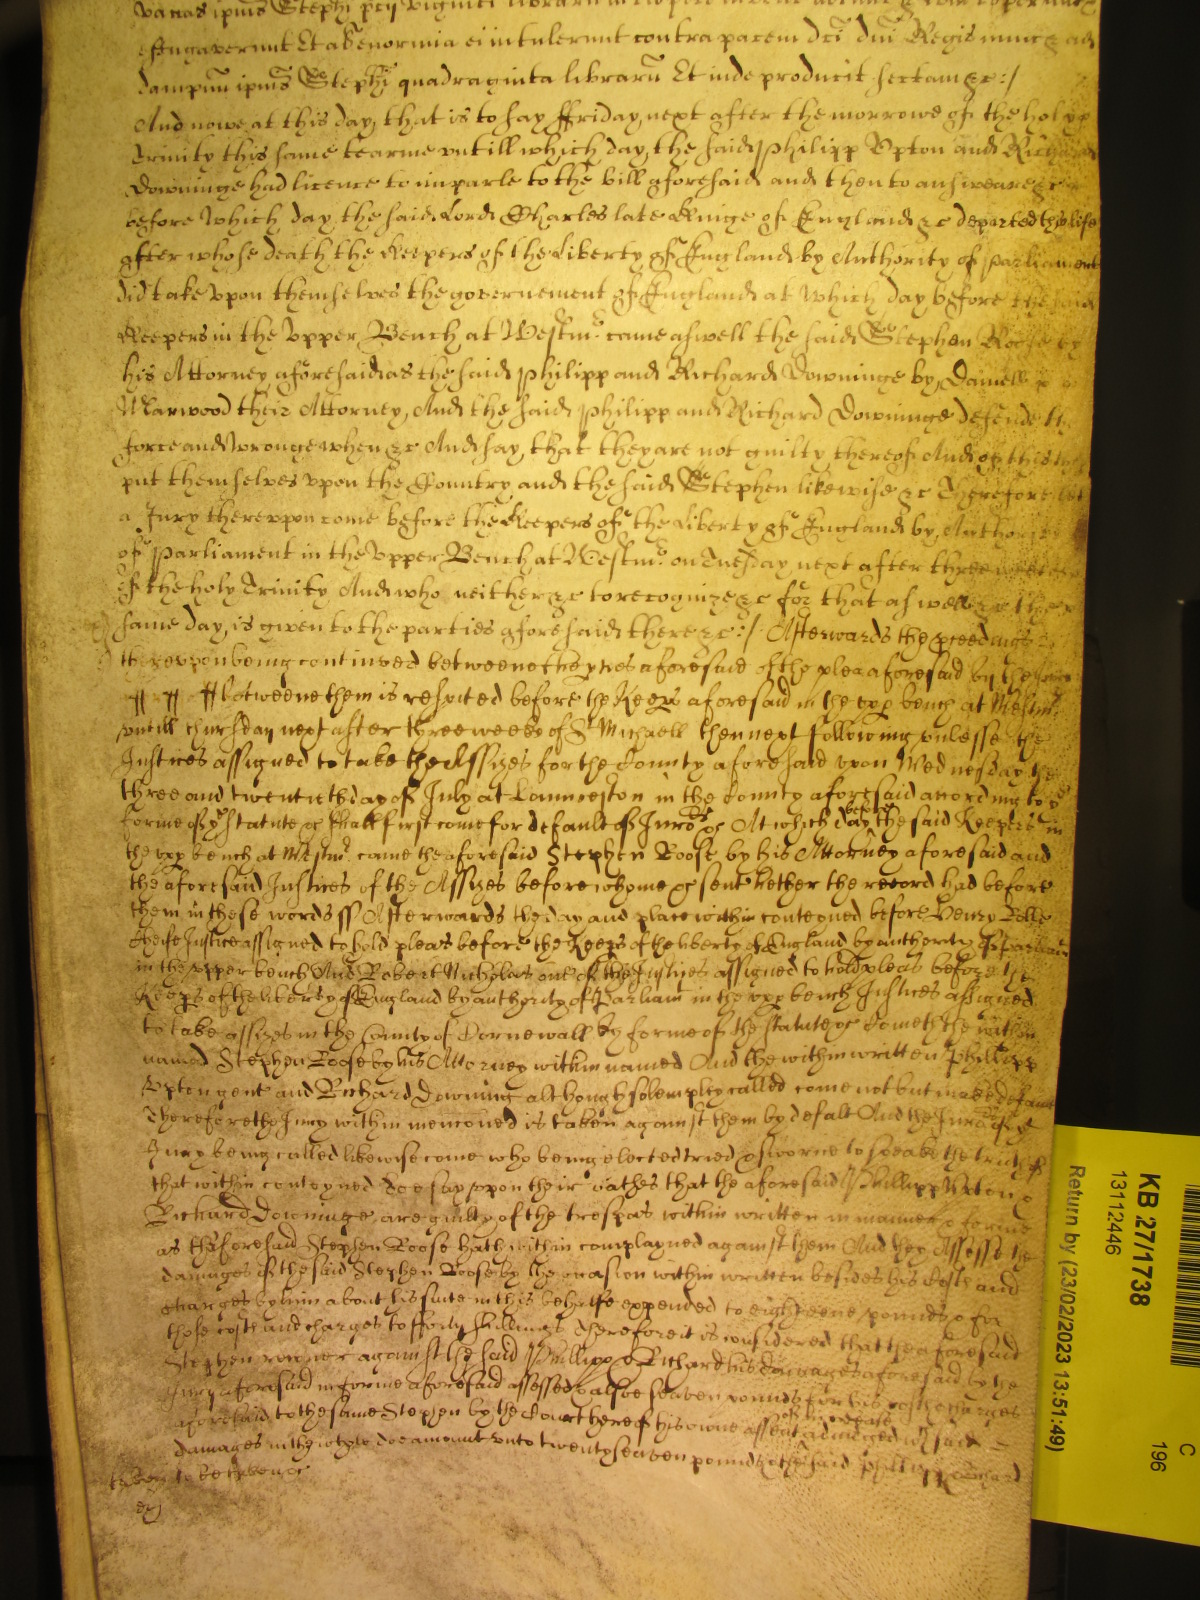 vaccas ipius Stephi pcij viginti librarum
effugaverunt Et al enormia ei intulerunt contra pacem dci dni Regis nunc &c ad
dampnu ipius Stephi quadraginta libraru Et inde producit sectam &c :/
And nowe at this day, that is to say ffriday next after the morrowe of the holy
Trinity this same tearme untill which day, the said Philipp Upton and Richard
Downinge had licence to imparle to the bill aforesaid and then to answeare &c
before which day the said Lord Charles late Kinge of England &c departed this life
after whose death the Keepers of the Liberty of England by Authority of Parliament
did take upon themselves the governement of England at which day before the said
Keepers in the Upper Bench at Westm. came aswell the said Stephen Roose by
his Attorney aforesaid as the said Philipp and Richard Downinge by Daniell
Marwood their Attorney, And the said Philipp and Richard Downinge defende the
force and wronge when &c And say, that they are not guilty thereof And of this they
put themselves upon the Country and the said Stephen likewise &c Therefore let
a Jury thereupon come before the Keepers of the Liberty of England by, Authority
of Parliament in the Upper Bench at Westm. on Tuesday next after three weekes
of the holy Trinity And who neither &c to recognize &c for that aswell &c the
same day, is given to the parties aforesaid there &c :/ Afterwards the pceedings
thereupon being continued betweene the pties aforesaid of the plea aforesaid by the Jury
betweene them is respited before the Keeps aforesaid in the upp bench at Westm.
untill thursday next after three weeks of St Michaell then next following unlesse the
Justices assigned to take the Assizes for the County aforesaid upon Wednesday the
three and twentieth day of July at Launceston in the County aforesaid according to ye
forme of ye Statute &c shall first come for default of Juro.rs &c At which day before the said Keepers in
the upp bench at Westm. came the aforesaid Stephen Roose by his Attorney aforesaid and
the aforesaid Justices of the Assizes before whome &c sent hether the record had before
them in these words ss Afterwards the day and place within conteyned before Henry Rolle
Cheife Justice assigned to hold pleas before the Keeps of the liberty of England by authority of Parliam
in the upper bench And Robert Nicholas one of the Justices assigned to hold pleas before the
Keeps of the liberty of England by authority of Parliamt in the upp bench Justices assigned
to take assizes in the County of Cornewall by forme of the statute &c cometh the within
named Stephen Roose by his Attorney within named And the within written Phillipp
Upton gent and Richard Downing although solempley called come not but made default
Therefore the Jury within menconed is taken against them by defalt And the Juro.rs of ye
Jury being called likewise come who being elected tried & sworne to speake the truth of
that within conteyned doe say upon their oathes that the aforesaid Phillipp Upton &
Richard Downinge are guilty of the trespas within written in manner & forme
as the foresaid Stephen Roose hath within complayned against them And they Assesse the
damages of the said Stephen Roose by the occasion within written besides his Costs and
charges by him about his suite in this behalfe expended to eighteene pounds & for
those costs and charges to fforty shillings Therefore it is considered that the aforesaid
Stephen recover against the said Phillipp & Richard his damages aforesaid by the
Jury aforesaid in forme aforesaid assessed & alsoe seaven pounds for his costs & charges
aforesaid to the same Stephen by the Court here of his owne assent adiudged
damages in the whole doe amount unto twenty seaven pounds & the said Phillipp & Richard
taken to be &c
KB 27/1738
13112446
Return by (23/02/2023 13:51:49)
C
196